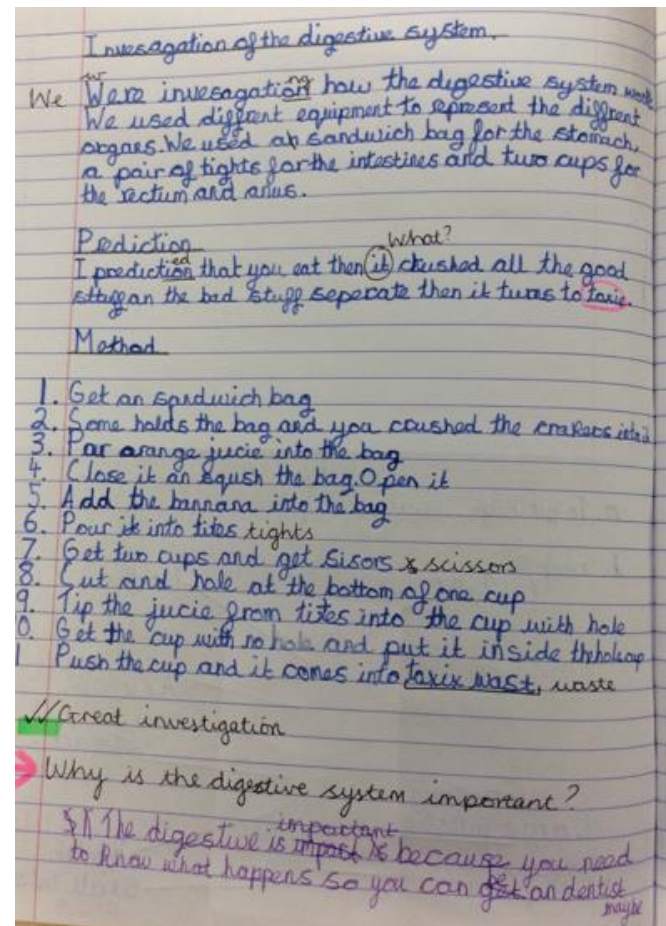 Invesagation of the digestive system.
We Were invesagating how the digestive system work
We used diffrent equipment to represent the diffrent
organes. We used a sandwich bag for the stomach,
a pair of tights for the intestines and two cups for
the rectum and anus.
Prediction
What?
I prediction ed that you eat then it chrushed all the good
stuff an the bad stuff seperate then it turns to toxic.
Method
1. Get an sandwich bag
2. Some holds the bag and you crushed the crakers into it
3. Par orange jucie into the bag
4. Close it an sqush the bag. Open it
5. Add the bannana into the bag
6. Pour it into tites tights
7. Get two cups and get sisors scissors
8. Cut and hole at the bottom of one cup
9. Tip the jucie from tites into the cup with hole
0. Get the cup with no hole and put it inside th hole cup
1 Push the cup and it comes into toxix wast, waste
Great investigation
Why is the digestive system important?
important
The digestive is impost is because you need
to know what happens so you can be an dentist
maybe